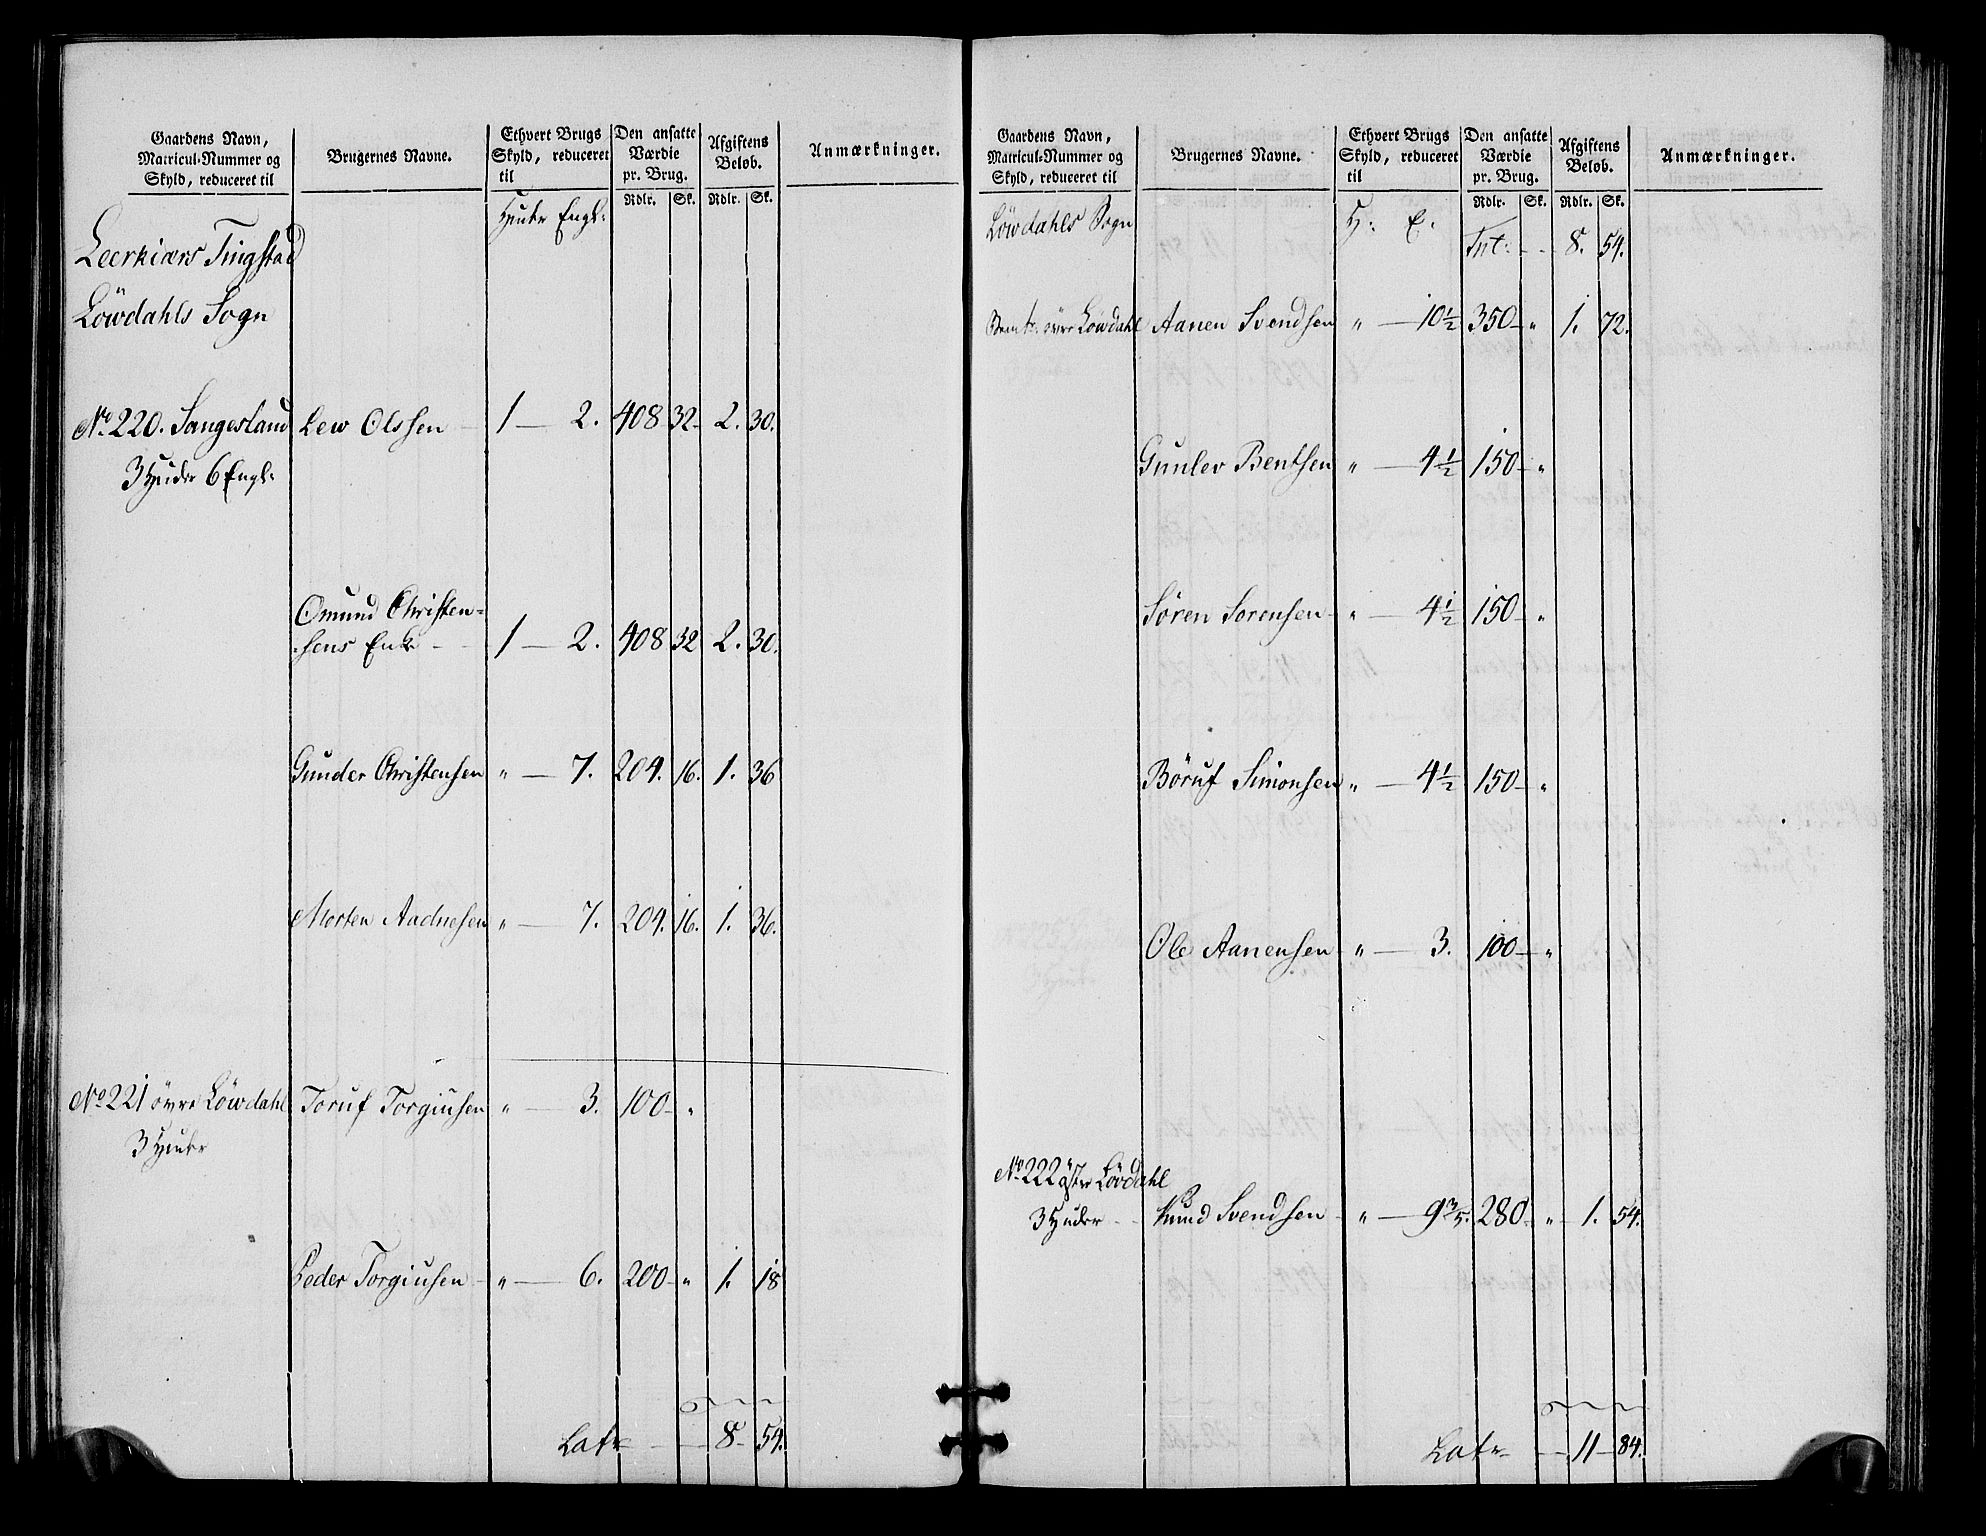 Gaardens Navn,
Matricul-Nummer og
Skyld, reduceret til
Brugernes Navne.
Ethvert Brugs
Skyld, reduceret
til
Den ansatte
Værdie
pr. Brug.
Afgiftens
Beløb.
Anmærkninger.
Rdlr. Sk. Rdlr. Sk.
Huder Engl:
Leerkiærs Tingstad
Löwdahls Sogn
No. 220. Sangesland Lew Olssen 1 — 2. 408 32 2. 30.
3 Huder 6 Engl:
Omund Christen-
sens Enke 1 — 2. 408 32 2. 30.
Gunder Christensen " — 7. 204. 16. 1. 36
Morten Aadnesen " — 7. 204. 16. 1. 36.
No 221 övre Löwdahl Toruf Torgiusen " — 3. 100 "
3 Huder
Peder Torgiusen " — 6. 200 " 1. 18
Latr 8 54.
Gaardens Navn,
Matricul-Nummer og
Skyld, reduceret til
Brugernes Navne.
Ethvert Brugs
Skyld, reduceret
til
Den ansatte
Værdie
pr. Brug.
Afgiftens
Beløb.
Anmærkninger.
Rdlr. Sk. Rdlr. Sk.
Löwdahls Sogn H: E.
Tnt: 8. 54.
övre Löwdahl Aanen Svendsen " — 10½ 350 " 1. 72.
Gunlev Bentsen " — 4½ 150 "
Sören Sorensen " — 4½ 150 "
Böruf Simonsen " — 4½ 150 "
Ole Aanensen " — 3. 100 "
No 222 östre Lövdahl
3 Huder Knud Svendsen " — 9 3/5. 280 " 1. 54.
Latr 11 84.